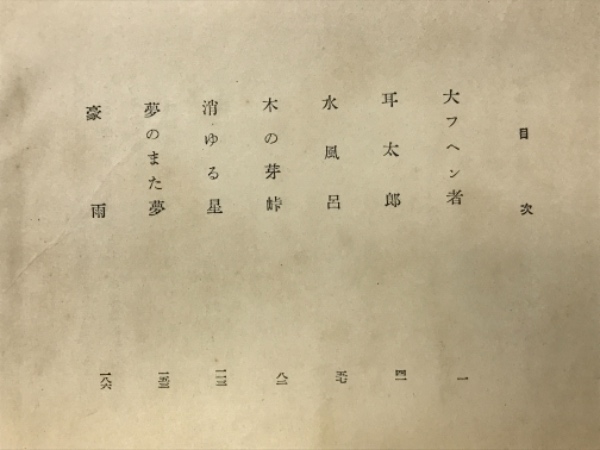 目次
大フヘン者 一
耳太郎 四一
水風呂 五七
木の芽峠 八二
消ゆる星 一二三
夢のまた夢 一五三
豪雨 一八六